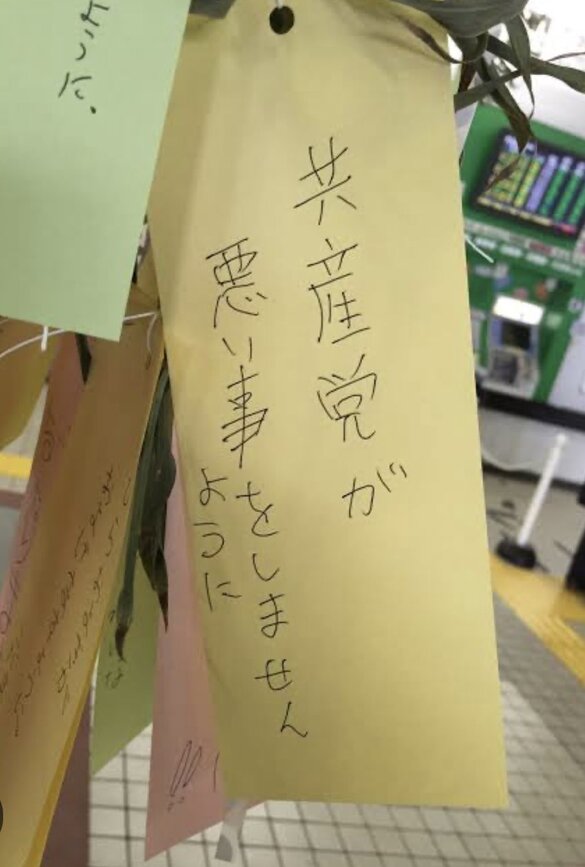 共産党が
悪い事をしません
ように